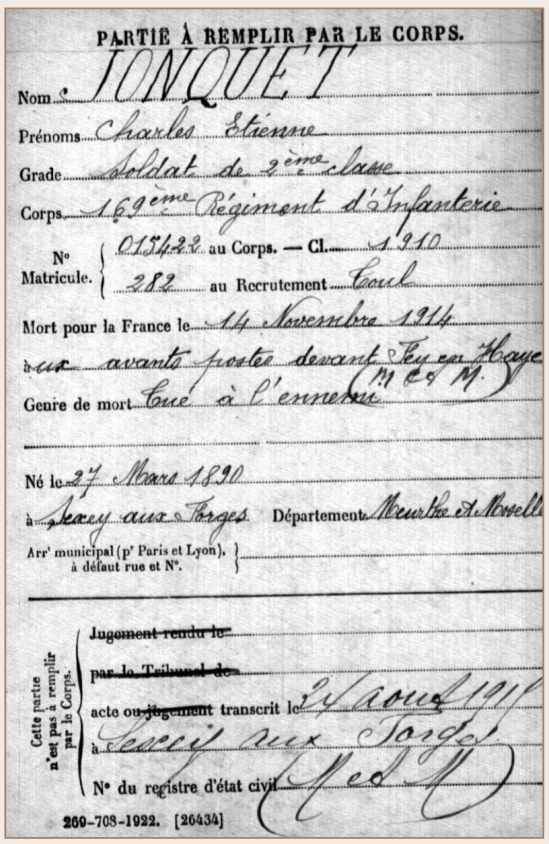 PARTIE À REMPLIR PAR LE CORPS.
Nom JONQUET
Prénoms Charles Etienne
Grade Soldat de 2ème classe
Corps 169ème Régiment d'Infanterie
N° Matricule. { 015422 au Corps. — Cl. 1910
282 au Recrutement Toul
Mort pour la France le 14 Novembre 1914
à ux avants postes devant Fey en Haye
(M et M.)
Genre de mort Tué à l'ennemi
Né le 27 Mars 1890
à Sexey aux Forges Département Meurthe et Moselle
Arrt municipal (pr Paris et Lyon),
à défaut rue et N°.
Cette partie n'est pas à remplir par le Corps.
Jugement rendu le
par le Tribunal de
acte ou jugement transcrit le août 191
à aux Forges
N° du registre d'état civil (M et M)
269-708-1922. [26434]